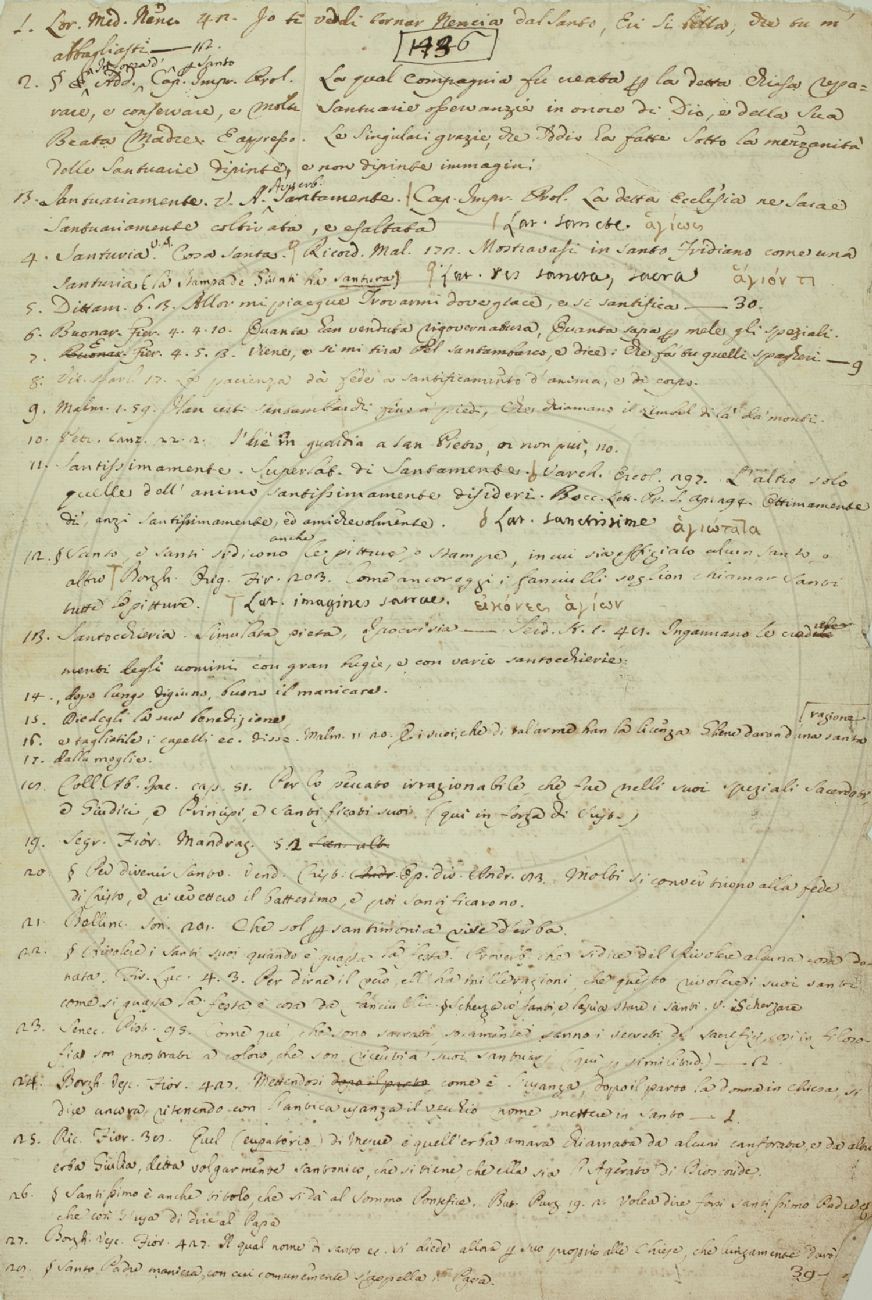 1. Lor. Med. Nenc. 42. Io ti vedi tornar Nencia dal Santo, Eri sì bella, che tu m'
abbagliasti — 12.
1436
2. § Add. Cap. Impr. Prol. La qual compagnia fu creata per la detta chiesa repa=
rare, e conservare, e molte Santuarie osservanzie in onore di Dio, e della Sua
Beata Madre. E appresso. Le singulari grazie, che Iddio ha fatte sotto la mezzanità
delle Santuarie dipinte, e non dipinte immagini
13. Santuariamente. v. A. Avverb. Santamente. Cap. Impr. Prol. La detta Ecclesia ne sarae
Santuariamente coltivata, e esaltata Lat. sancte ἁγίως
4. Santuria. v. A. Cosa santa. Ricord. Mal. 172. Mostravasi in santo Fridiano come una
santuria (la stampa de' Giunti ha santura) Lat. res sancta, sacra
5. Dittam. 6. 13. Allor mi piacque trovarmi dove giace, e si santifica — 30.
6. Buonar. Fier. 4. 4. 10. Quanta han venduta rigovernatura, Quanta sapa per mele gli speziali.
7. E Fier. 4. 5. 13. Viene, e si mi tira Pel santambarco, e dice: Che fa' tu quelli spagheri — 9
8. 17. La pacienza dà fede a santificamento d'anima, e di corpo.
9. Malm. 1. 59. Han certi santambarchi fino a' piedi, Che chiamano il zimbel di là da' monti.
10. canz. 22. 2. in guardia a San Pietro, or non più, no.
11. Santissimamente. Superlat. di Santamente. Varch. Ercol. 297. L'altro solo
quelle dell'animo santissimamente disideri. Bocc. Lett. Pr. S. Ap. 294. Ottimamente
di', anzi santissimamente, ed amichevolmente. Lat. sanctissime ἁγιώτατα
12. § Santo, e Santi si dicono anche le pitture, o stampe, in cui sia effigiato alcun santo, o
altro Borgh. Orig. Fir. 203. Come ancor oggi i fanciulli soglion chiamar Santi
tutte le pitture. Lat. imagines sacrae. εἰκόνες ἁγίων
113. Santocchieria. Simulata pietà, Ipocrisia — Ingannano le
menti degli uomini con gran bugie, e con varie santocchierie.
14. dopo lungo digiuno, buono il manicare.
15. Diedegli la sua benedizione
16. e tagliatile i capelli ec. disse. Malm. 11. 20. E i suoi, che di tal'arme han la licenza Ebene daron d'una santa ragione
17. dalla moglie.
18. Coll. Ab. Isac. cap. 51. Per lo peccato irrazionabile, che fue nelli suoi speziali Sacerdoti
e Giudici, e Principi, e santificati suoi (qui in forza di Sust.)
19. Segr. Fior. Mandrag. 5. 2
20. § Per divenir Santo. Vend. Crist. Op. div. Andr. 113. Molti si convertirono alla fede
di Cristo, e ricevettero il battesimo, e poi santificarono.
21. Bellinc. son. 201. Che sol per santimonia vive d'erba.
22. § Rivolere i Santi suoi quando è guasta la festa. Proverb. che si dice del Rivolere alcuna cosa do=
nata. Fir. Luc. 4. 3. Per dirne il vero, ell'ha mille ragioni, che questo rivolere i suoi santi
come si guasta la festa è cosa da fanciulli. § Scherza co' fanti, e lascia stare i santi. v. Scherzare
23. Senec. Pist. 95. Come que' che sono sacrati, solamente sanno i secreti del sacrifizio, così in filoso-
fia son mostrati a coloro, che son ricevuti a' suoi santuari (qui per similitud.) — 12
24. Borgh. Vesc. Fior. 427. Mettendosi dopo il parto come è l'usanza, dopo il parto la donna in chiesa, si
dice ancora, ritenendo con l'antica usanza il vecchio nome mettere in santo — 1.
25. Ric. Fior. 39. Quel (eupatorio) di Mesue è quell'erba amara chiamata da alcuni canforata, e da altri
erba Giulia, detta volgarmente santonico, che si tiene che ella sia l'Agerato di Dioscoride.
26. § Santissimo è anche titolo, che si dà al Sommo Pontefice. But. Purg. 19. 2. Volea dire forsi santissimo Padre,
che così s'usa di dire al Papa
27. Borgh. Vesc. Fior. 427. Il qual nome di santo ec. si diede allora per suo proprio alle Chiese, che lungamente durò
39
29. § Santo Padre maniera, con cui comunemente s'appella il Papa.